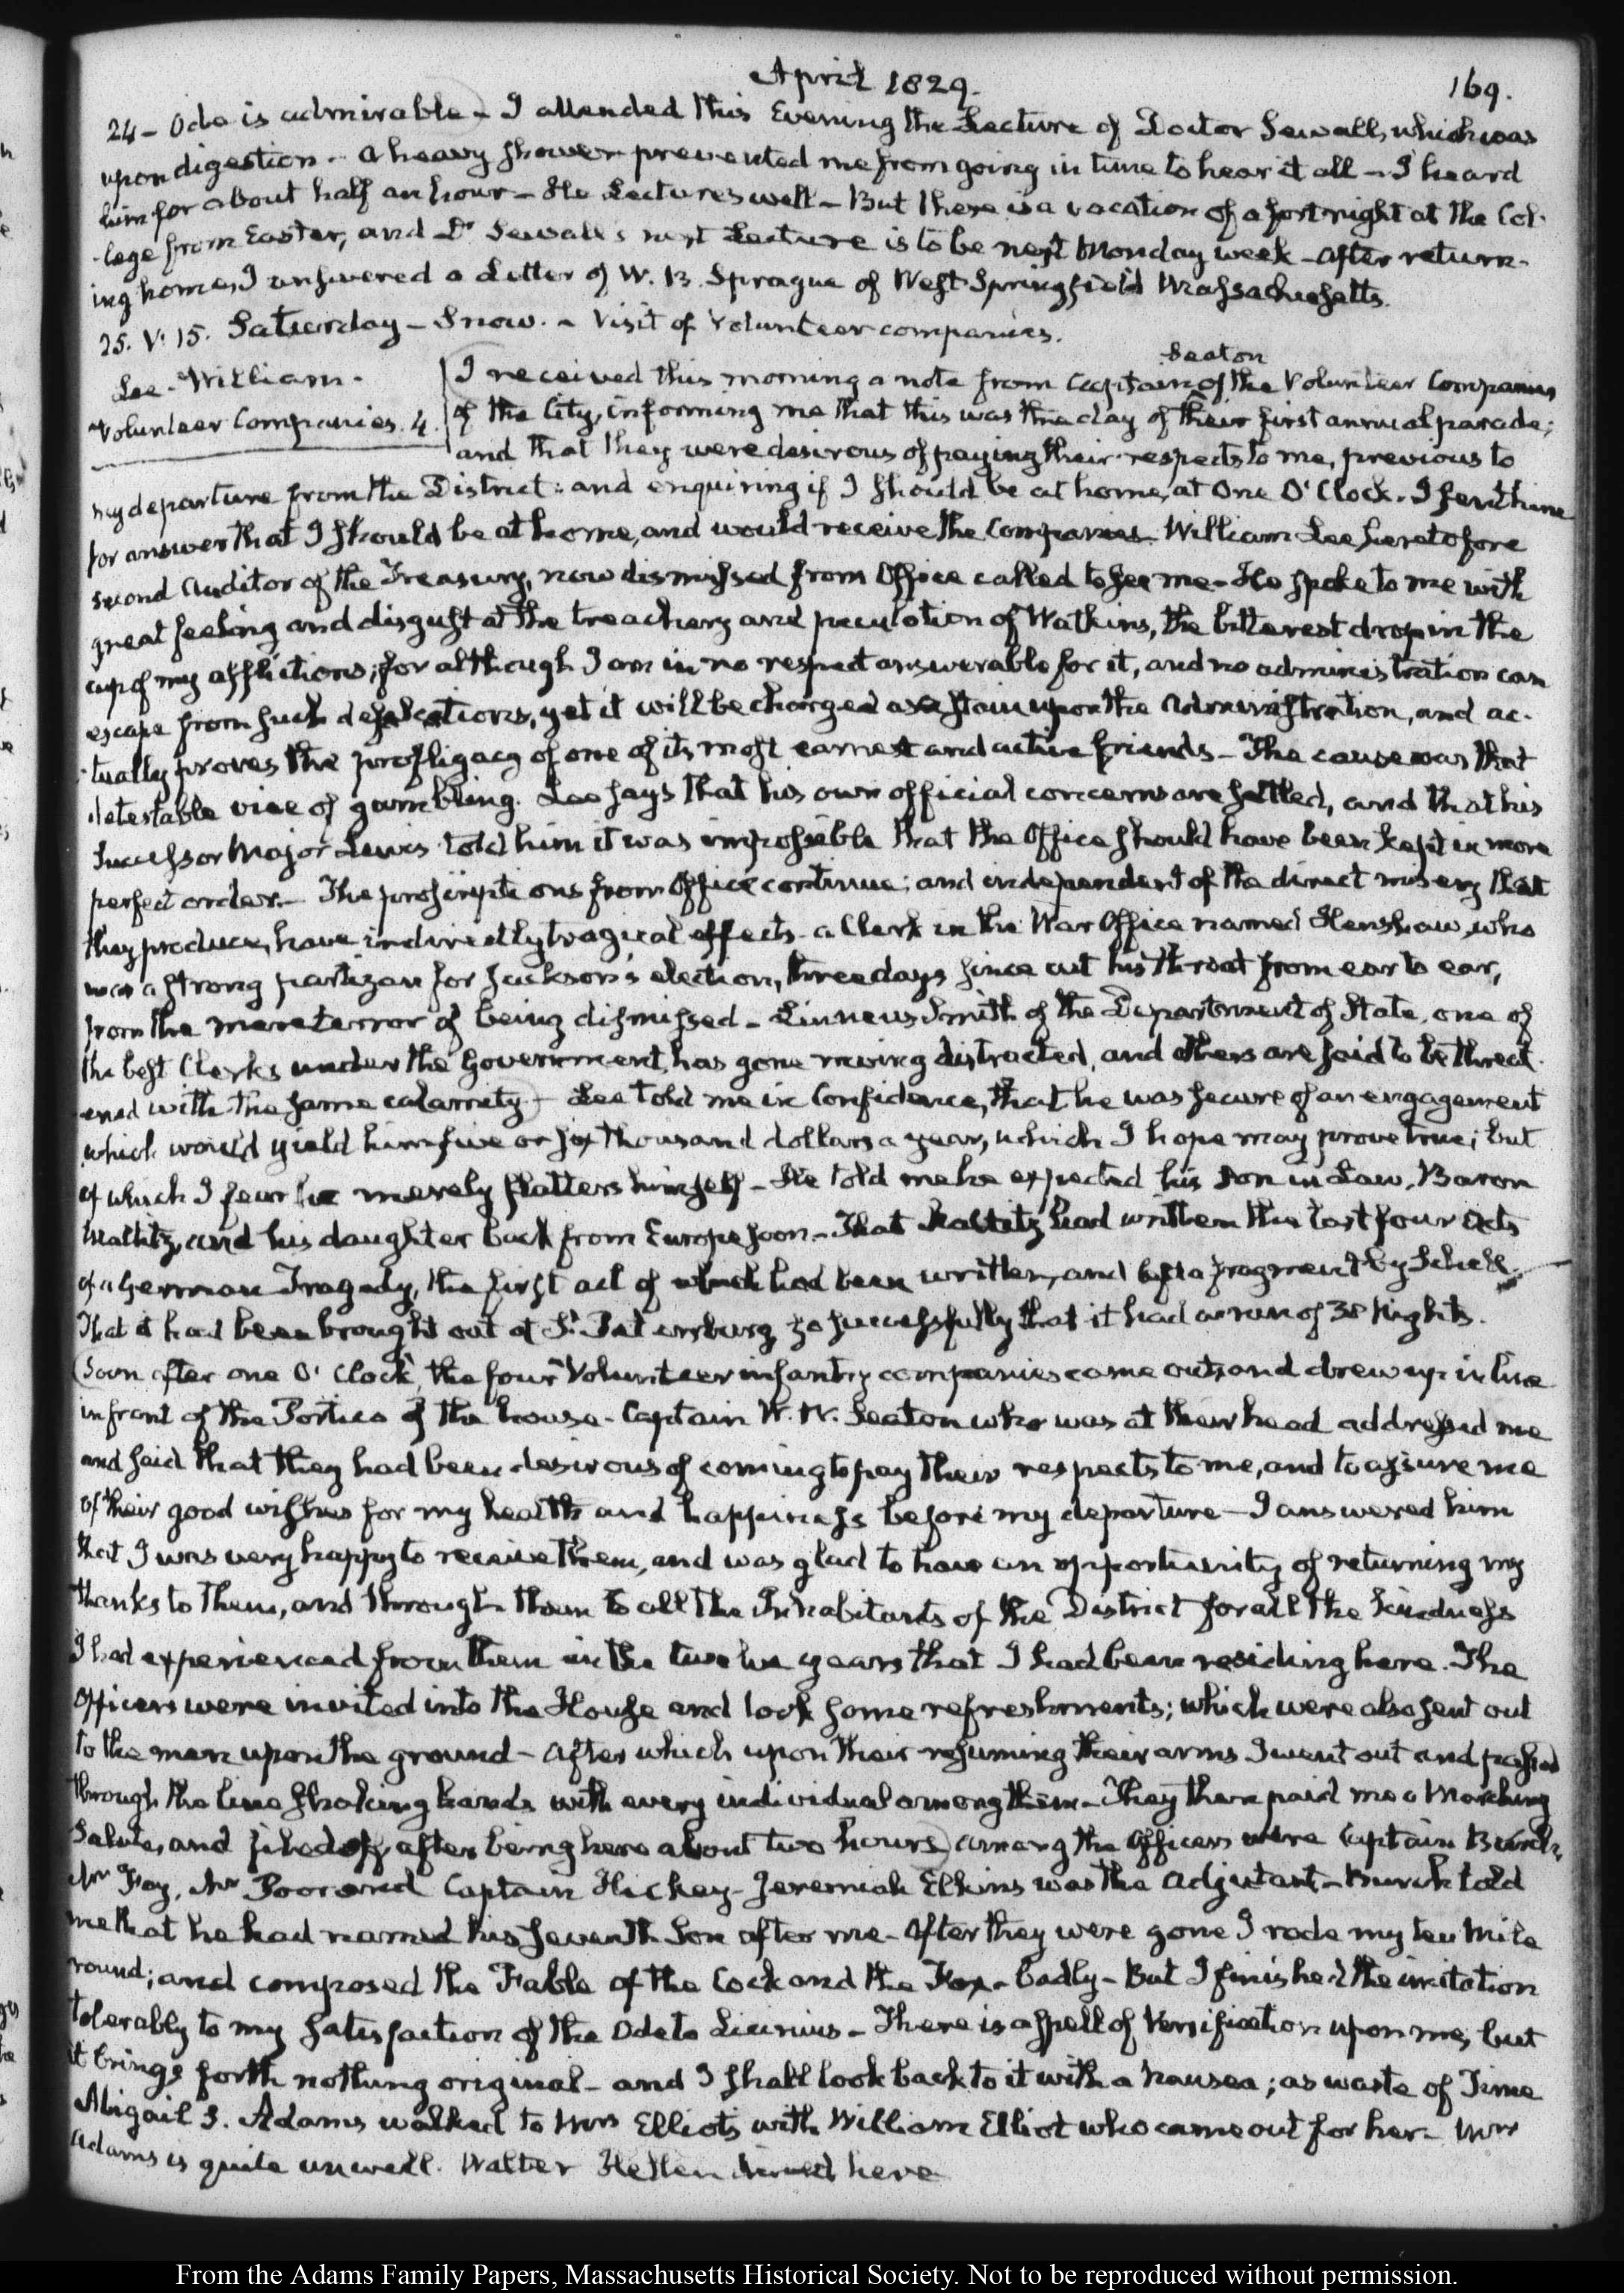 April 1829.
169.
24 - Ode is admirable - I attended this Evening the Lecture of Doctor Sewall, which was
upon digestion - a heavy shower prevented me from going in time to hear it all - I heard
him for about half an hour - He Lectures well - But there is a vacation of a fortnight at the Col-
-lege from Easter, and Dr Sewall's next Lecture is to be next Monday week - After return-
ing home, I answered a Letter of W. B. Sprague of West Springfield Massachusetts.
25. V: 15. Saturday - Snow. - Visit of Volunteer companies.
Lee - William.
Volunteer Companies. 4.
Seaton
I received this morning a note from Captain of the Volunteer Companies
of the City, informing me that this was the day of their first annual parade;
and that they were desirous of paying their respects to me, previous to
my departure from the District: and enquiring if I should be at home, at One O'Clock. I sent him
for answer that I should be at home, and would receive the Companies. William Lee heretofore
second Auditor of the Treasury, now dismissed from Office called to see me - He spoke to me with
great feeling and disgust at the treachery and peculation of Watkins, the bitterest drop in the
cup of my afflictions; for although I am in no respect answerable for it, and no administration can
escape from such defalcations, yet it will be charged as a stain upon the Administration, and ac-
-tually proves the profligacy of one of its most earnest and active friends - The cause was that
detestable vice of gambling. Lee says that his own official concerns are settled, and that his
successor Major Lewis told him it was impossible that the Office should have been kept in more
perfect order. - The proscriptions from Office continue; and independent of the direct misery that
they produce, have indirectly tragical effects - a Clerk in the War Office named Henshaw, who
was a strong partizan for Jackson's election, three days since cut his throat from ear to ear,
from the mere terror of being dismissed - Linneus Smith of the Department of State, one of
the best Clerks under the Government, has gone raving distracted, and others are said to be threat-
-ened with the same calamity - Lee told me in Confidence, that he was secure of an engagement
which would yield him five or six thousand dollars a year, which I hope may prove true; but
of which I fear he merely flatters himself - He told me he expected his Son in Law, Baron
Maltitz, and his daughter back from Europe soon - That Maltitz had written the last four Acts
of a German Tragedy, the first act of which had been written, and left a fragment by Schiller.
That it had been brought out at St. Petersburg so successfully that it had a run of 38 Nights.
(Soon after one O'Clock, the four Volunteer infantry companies came out, and drew up in line
in front of the Portico of the house - Captain W. W. Seaton who was at their head addressed me
and said that they had been desirous of coming to pay their respects to me, and to assure me
of their good wishes for my health and happiness before my departure - I answered him
that I was very happy to receive them, and was glad to have an opportunity of returning my
thanks to them, and through them to all the Inhabitants of the District for all the kindness
I had experienced from them in the twelve years that I had been residing here. The
Officers were invited into the House and took some refreshments; which were also sent out
to the men upon the ground - After which upon their resuming their arms I went out and passed
through the line shaking hands with every individual among them - They then paid me a Marching
Salute, and filed off, after being here about two hours) among the Officers were Captain Burch,
Mr Fay, Mr Poor and Captain Hickey - Jeremiah Elkins was the Adjutant - Burch told
me that he had named his seventh Son after me - After they were gone I rode my ten Mile
round; and composed the Fable of the Cock and the Fox - badly - But I finished the imitation
tolerably to my satisfaction of the Ode to Licinius - There is a spell of Versification upon me, but
it brings forth nothing original - and I shall look back to it with a nausea; as waste of Time
Abigail S. Adams walked to Mrs Elliot's with William Elliot who came out for her - Mrs
Adams is quite unwell. Walter Hellen dined here
From the Adams Family Papers, Massachusetts Historical Society. Not to be reproduced without permission.